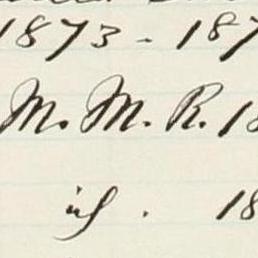 1873 - 187
M. M. R. 18
18